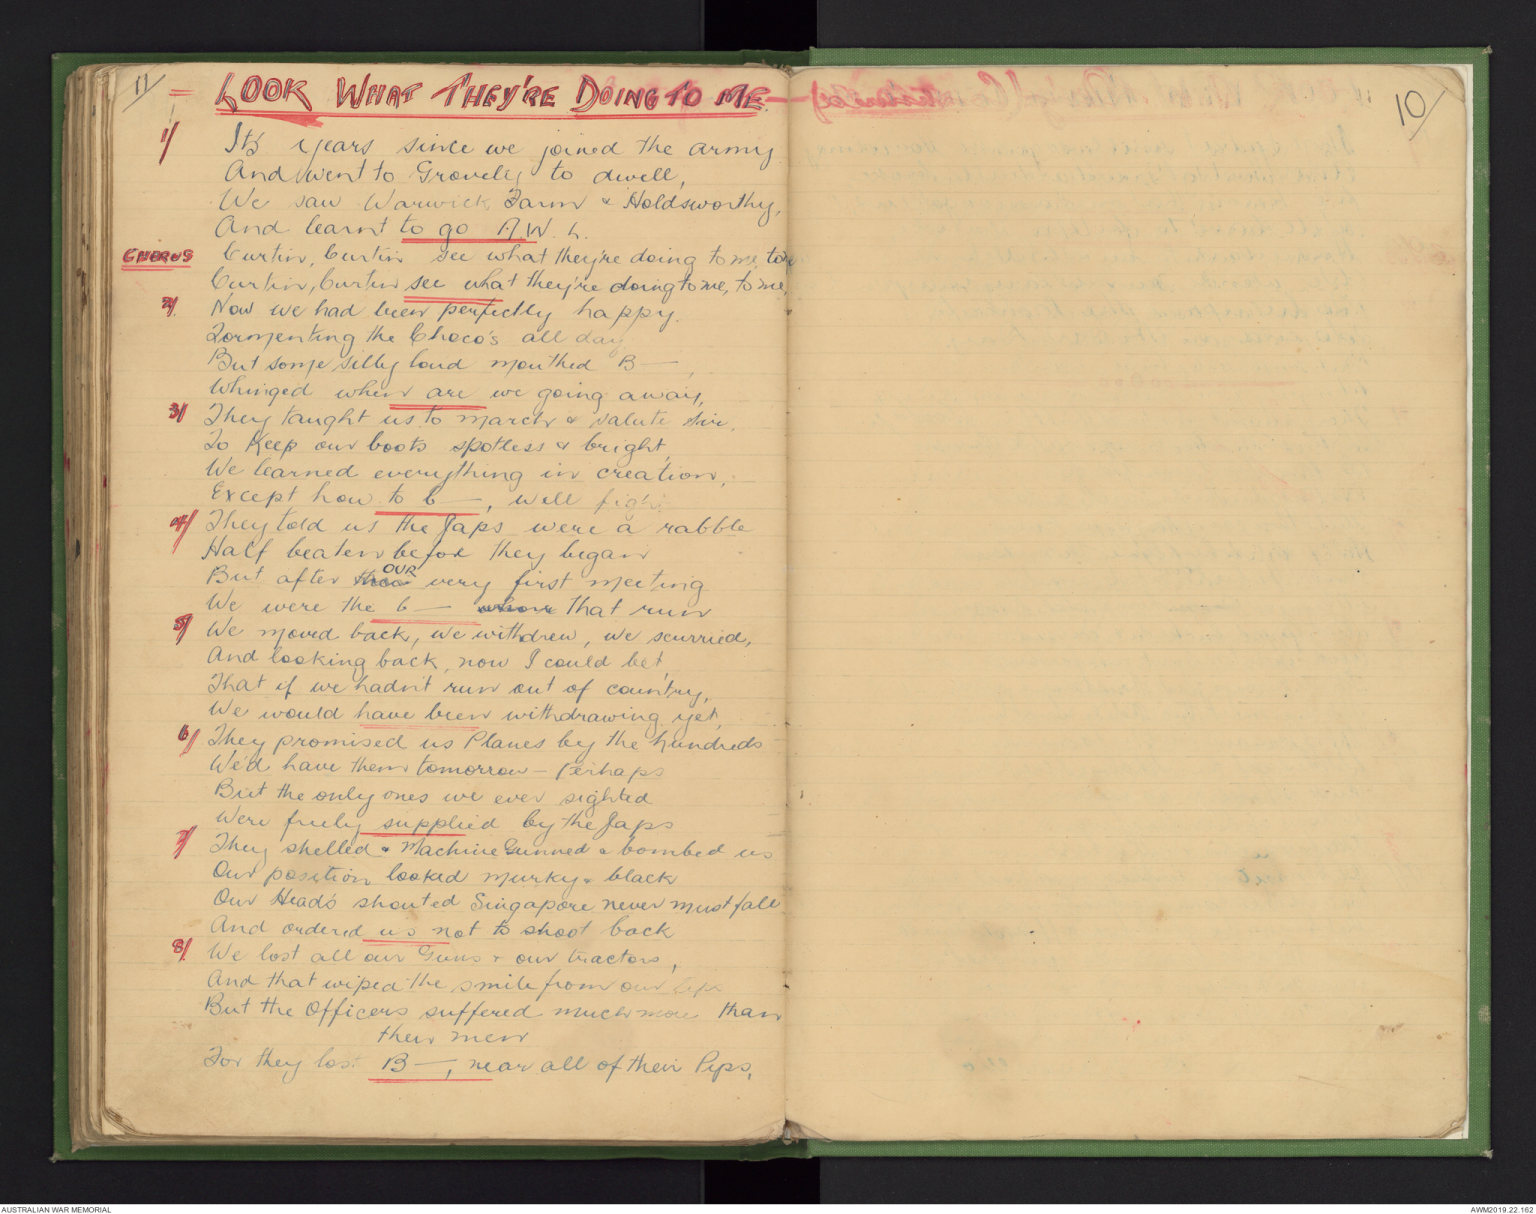 11/
= LOOK WHAT THEY'RE DOING TO ME —
1/ Its years since we joined the army
And went to Grovely to dwell,
We saw Warwick Farm & Holdsworthy,
And learnt to go A.W.L.
CHORUS Curtin, Curtin see what they're doing to me, to me
Curtin, Curtin see what they're doing to me, to me,
2/ Now we had been perfectly happy.
Tormenting the Choco's all day
But some silly loud mouthed B—,
Whinged when are we going away,
3/ They taught us to march & salute Sir,
To Keep our boots spotless & bright,
We learned everything in creation,
Except how to b—, well fight
4/ They told us the Japs were a rabble
Half beaten before they began
But after OUR very first meeting
We were the b— that run
5/ We moved back, we withdrew, we scurried,
And looking back, now I could bet
That if we hadn't run out of country,
We would have been withdrawing yet,
6/ They promised us Planes by the hundreds
We'd have them tomorrow – Perhaps
But the only ones we ever sighted
Were freely supplied by the Japs
7/ They shelled & Machine Gunned & bombed us
Our position looked murky & black
Our Head's shouted Singapore never must fall
And ordered us not to shoot back
8/ We lost all our Guns & our tractors,
And that wiped the smile from our lips
But the Officers suffered much more than
their men
For they lost B—, near all of their Pips,
10/
AUSTRALIAN WAR MEMORIAL
AWM2019.22.162